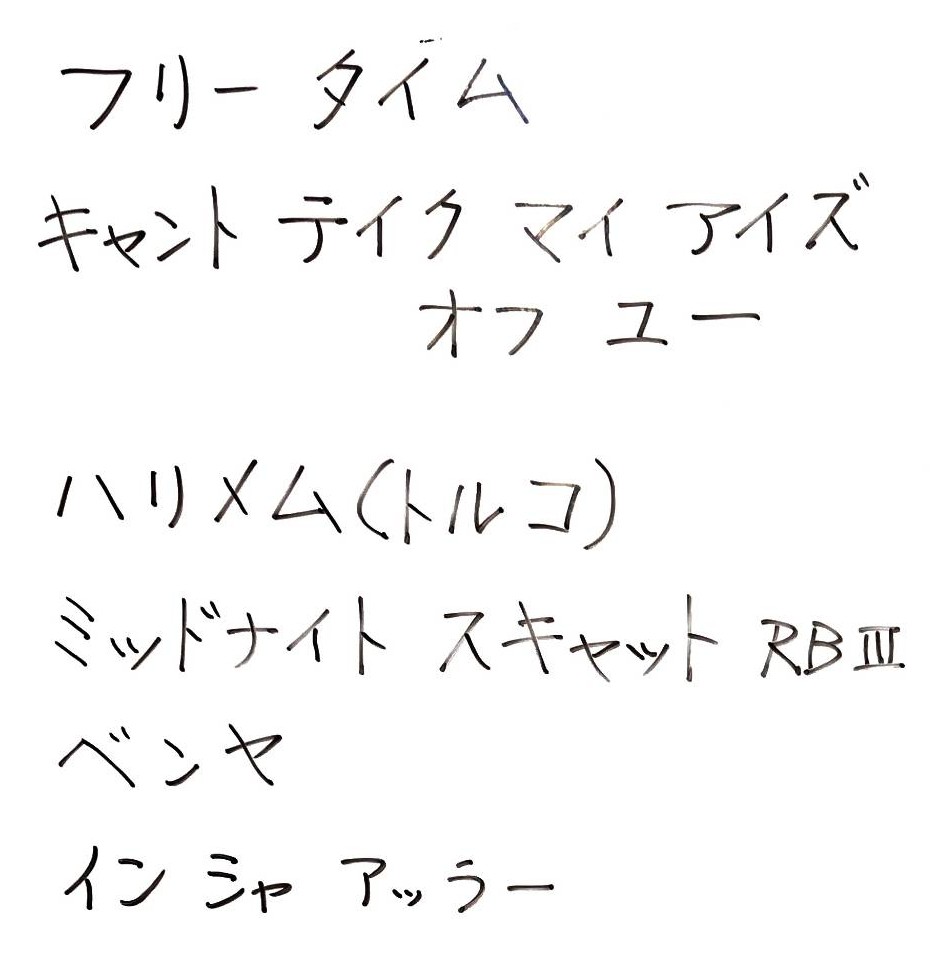 フリー タイム
キャント テイク マイ アイズ
オフ ユー
ハリメム(トルコ)
ミッドナイト スキャット RBⅢ
ベンヤ
インシャ アッラー